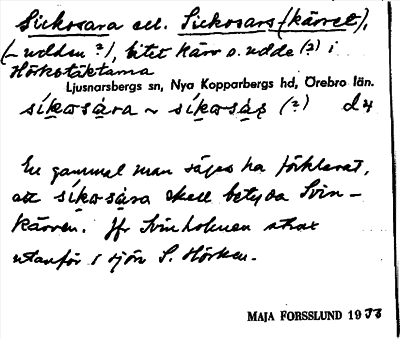 Sickosara ell. Sickosars-(kärret),
(-udden ?), litet kärr o. udde (?) i
Hörkstäktarna
Ljusnarsbergs sn, Nya Kopparbergs hd, Örebro län.
síkosàra ~ síkosàş (?) d4
En gammal man säges ha förklarat,
att síkosàra skall betyda Svin-
kärren. Jfr Svinholmen strax
utanför i sjön S. Hörken.
MAJA FORSSLUND 1933